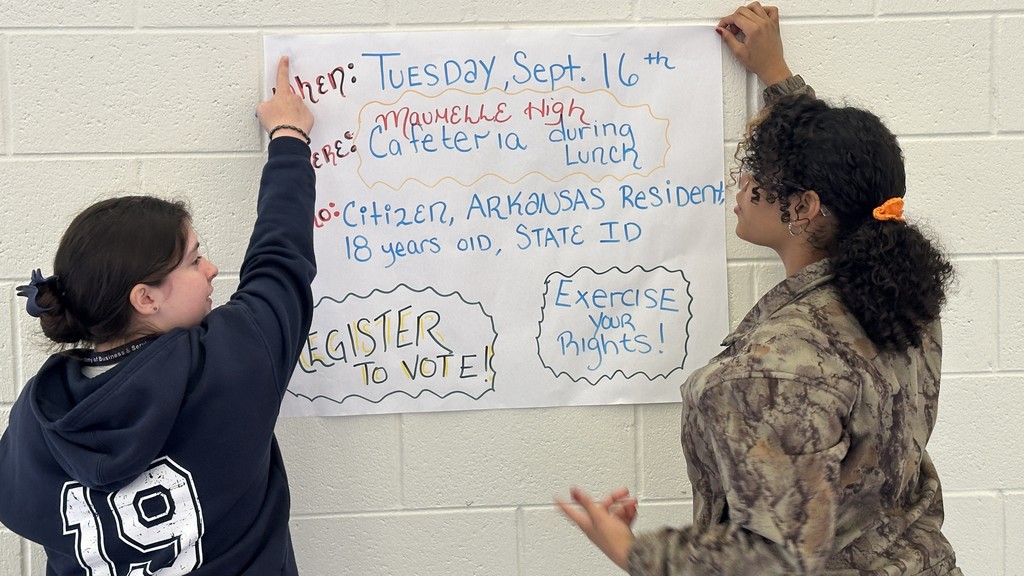 When: Tuesday, Sept. 16th
Maumelle High
Cafeteria during
Lunch
Citizen, Arkansas Resident,
18 years old, State ID
Register
to Vote!
Exercise
your
Rights!
19